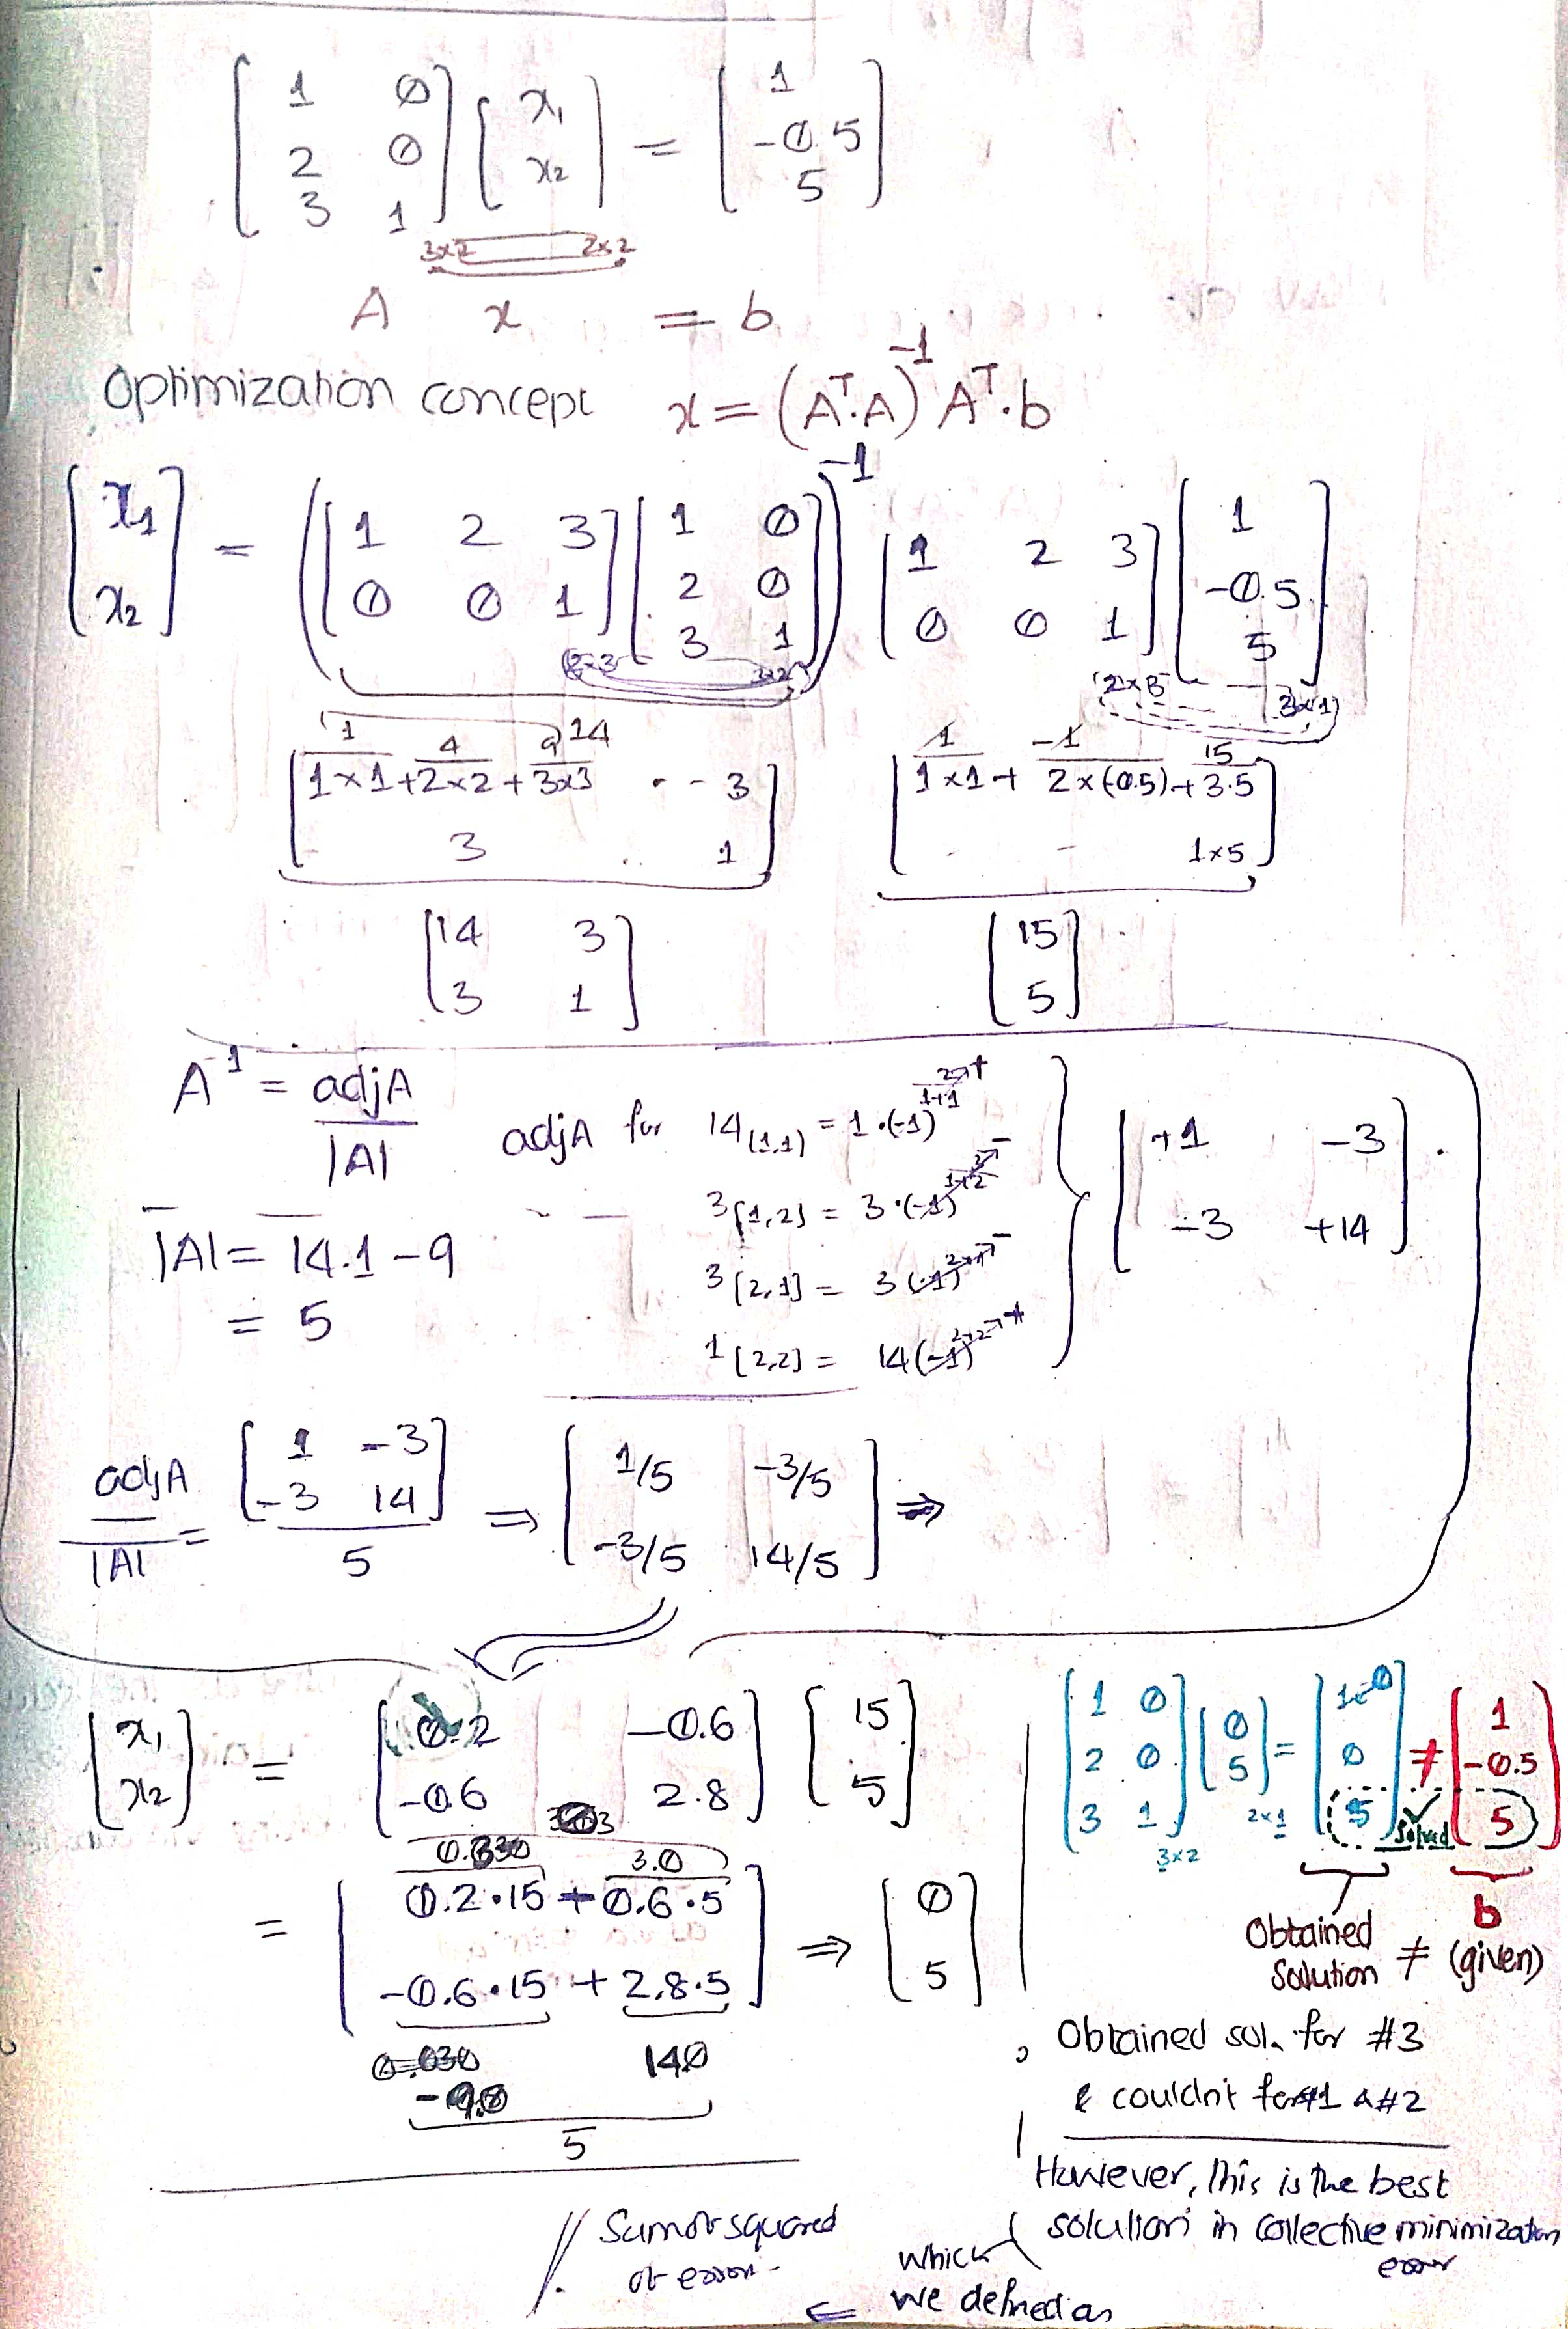 [1 0; 2 0; 3 1] [x₁; x₂] = [1; -0.5; 5]
3x2 2x2
A x = b
Optimization concept x = (Aᵀ.A)⁻¹ Aᵀ.b
[x₁; x₂] = ([1 2 3; 0 0 1] [1 0; 2 0; 3 1])⁻¹ [1 2 3; 0 0 1] [1; -0.5; 5]
2x3 3x2 2x3 3x1
1 4 9 14 1 -1 15
[1x1+2x2+3x3 . - 3; 3 .. 1] [1x1+ 2x(-0.5)+3.5; - - 1x5]
[14 3; 3 1] [15; 5]
A⁻¹ = adjA / |A|
adjA for 14(1,1) = 1.(-1)¹⁺¹ 2→+
3[1,2] = 3.(-1)¹⁺² 3→-
3[2,1] = 3(-1)²⁺¹→-
1[2,2] = 14(-1)²⁺²→+
[+1 -3; -3 +14].
|A| = 14.1 - 9
= 5
adjA / |A| = [1 -3; -3 14] / 5 ⇒ [1/5 -3/5; -3/5 14/5] ⇒
[x₁; x₂] = [0.2 -0.6; -0.6 2.8] [15; 5]
3.0
= [0.2.15 + 0.6.5; -0.6.15 + 2.8.5] ⇒ [0; 5]
14.0
-9.0
5
[1 0; 2 0; 3 1] [0; 5] = [0; 0; 5] ≠ [1; -0.5; 5]
3x2 2x1 solved
Obtained solution ≠ b (given)
Obtained sol. for #3
& couldn't for #1 & #2
However, this is the best
solution in collective minimization
error
which
we defined as
⇐
Sum of squared
of error